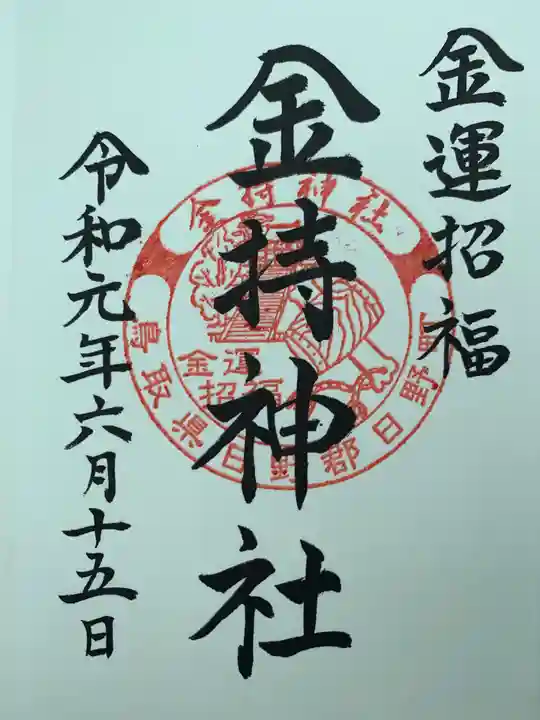 金運招福
金持神社
令和元年六月十五日
金持神社
鳥取県日野郡日野町
金運
招福